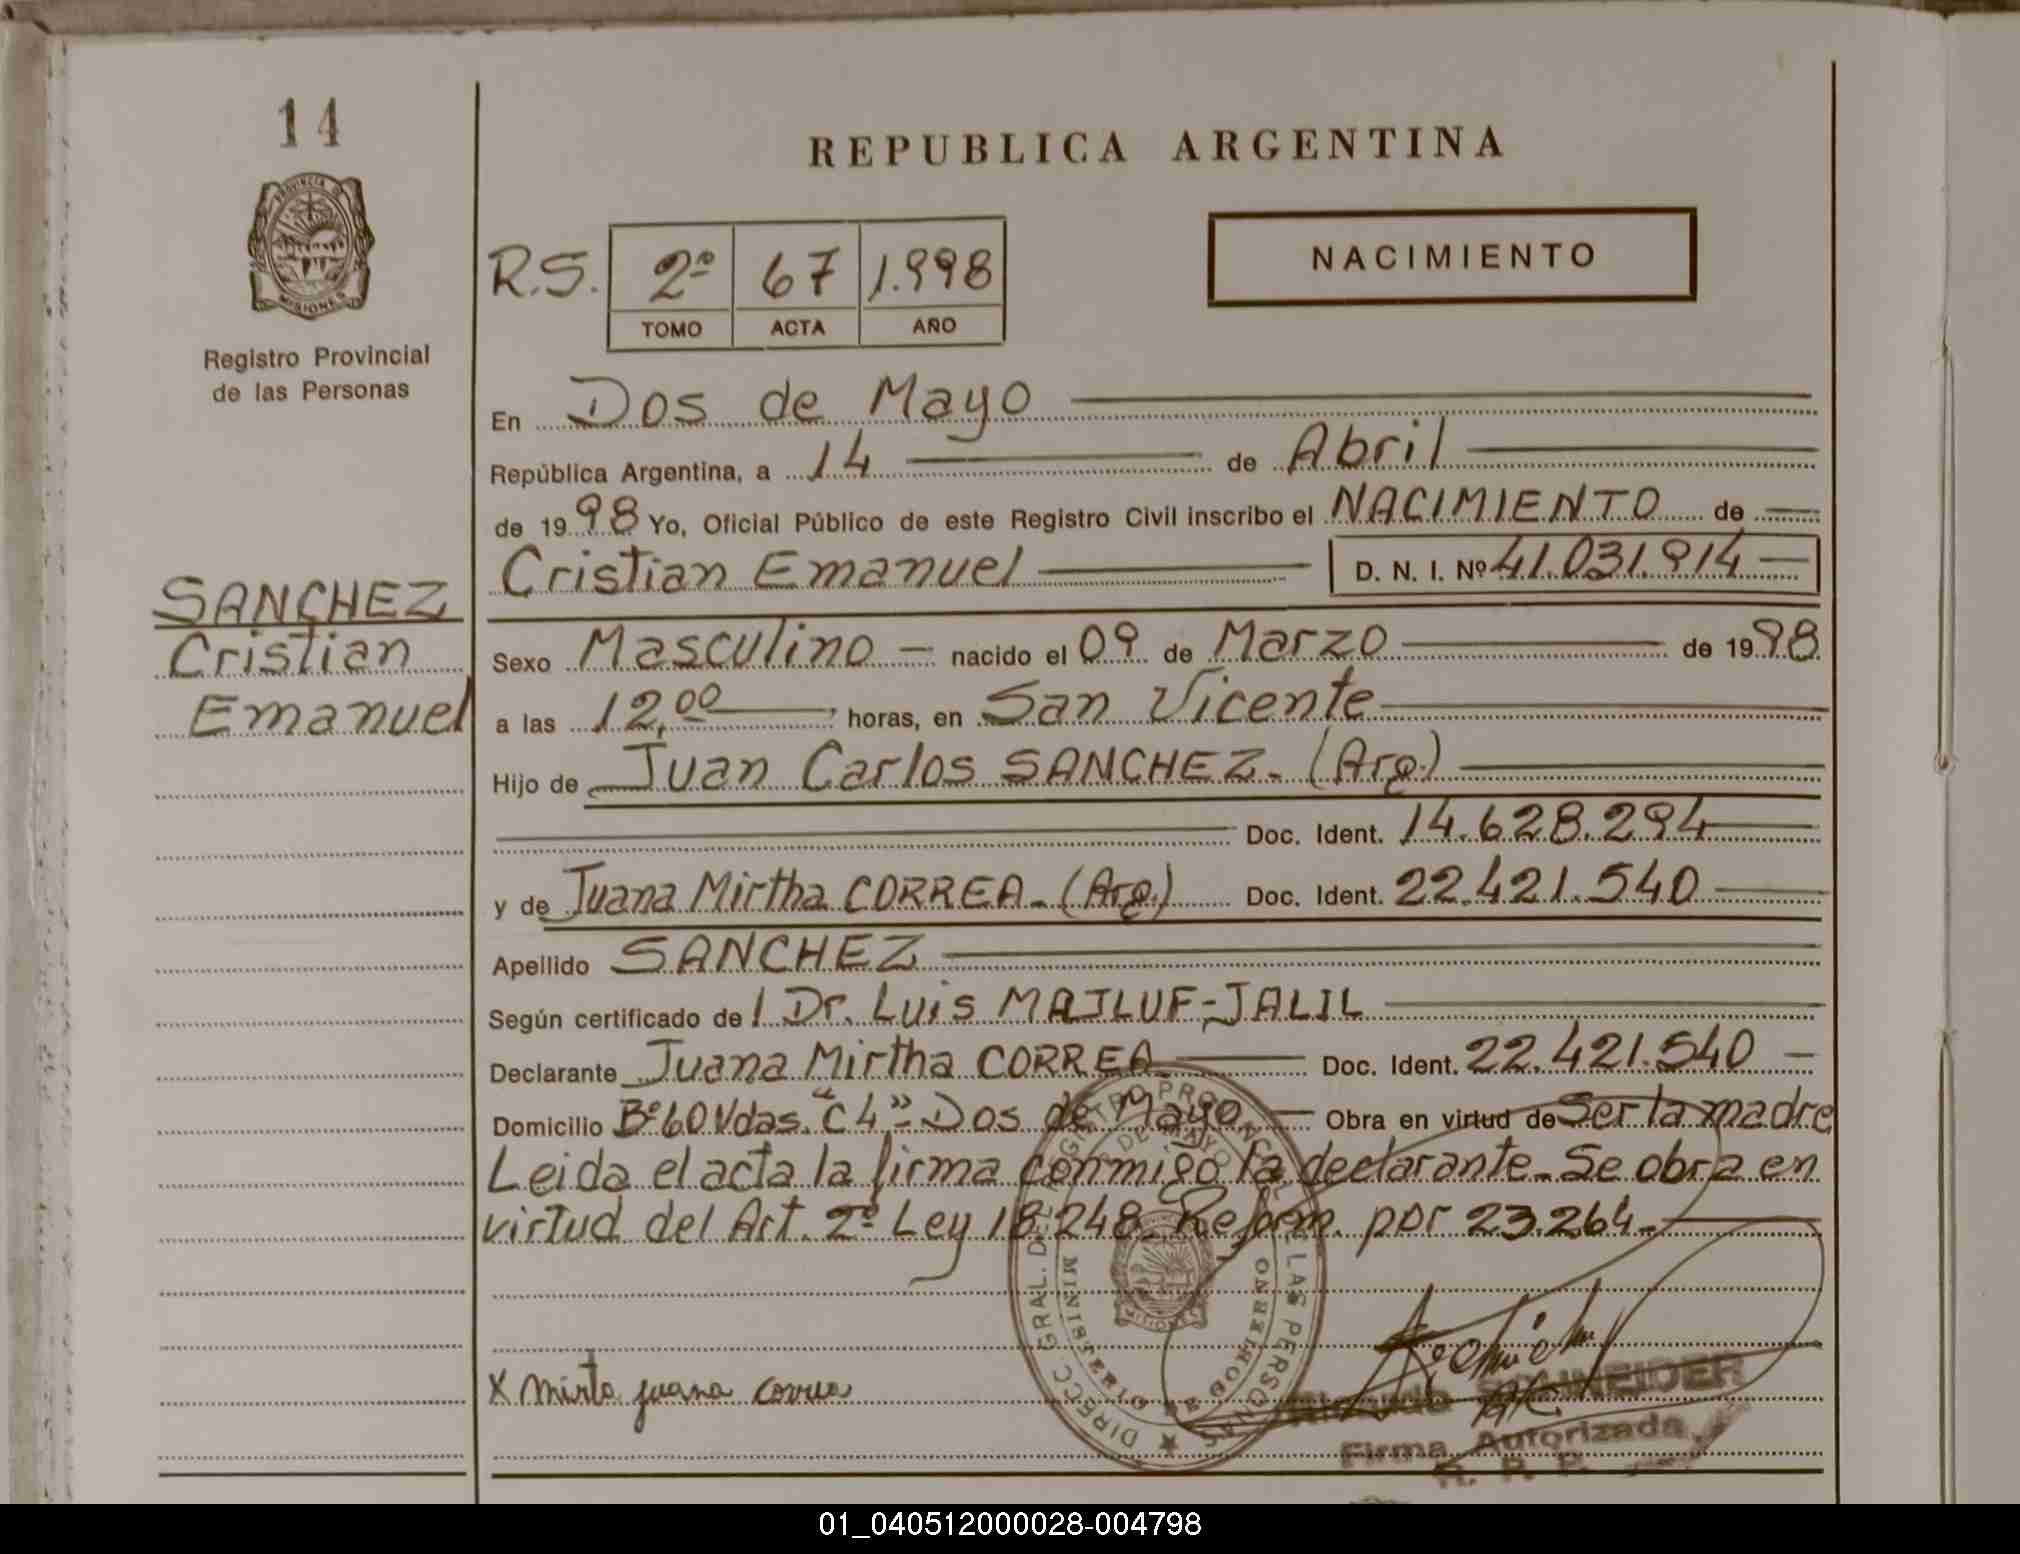 14
PROVINCIA DE
MISIONES
Registro Provincial
de las Personas
SANCHEZ
Cristian
Emanuel
REPUBLICA ARGENTINA
R.S. 2º 67 1.998
TOMO ACTA AÑO
NACIMIENTO
En Dos de Mayo
República Argentina, a 14 de Abril
de 1998 Yo, Oficial Público de este Registro Civil inscribo el NACIMIENTO de
Cristian Emanuel D. N. I. Nº 41.031.914
Sexo Masculino nacido el 09 de Marzo de 1998
a las 12,00 horas, en San Vicente
Hijo de Juan Carlos SANCHEZ. (Arg.)
Doc. Ident. 14.628.294
y de Juana Mirtha CORREA. (Arg.) Doc. Ident. 22.421.540
Apellido SANCHEZ
Según certificado del Dr. Luis MAJLUF-JALIL
Declarante Juana Mirtha CORREA Doc. Ident. 22.421.540
Domicilio Bº 60 Vdas. "C 4" - Dos de Mayo Obra en virtud de Ser la madre
Leida el acta la firma conmigo la declarante. Se obra en
virtud del Art. 2º Ley 18.248. Reform. por 23.264.
DIRECC. GRAL. DEL REGISTRO PROVINCIAL DE LAS PERSONAS
DOS DE MAYO
MINISTERIO DE GOBIERNO
MISIONES
X Mirta juana correa
SCHNEIDER
Firma Autorizada
R. P. P.
01_040512000028-004798